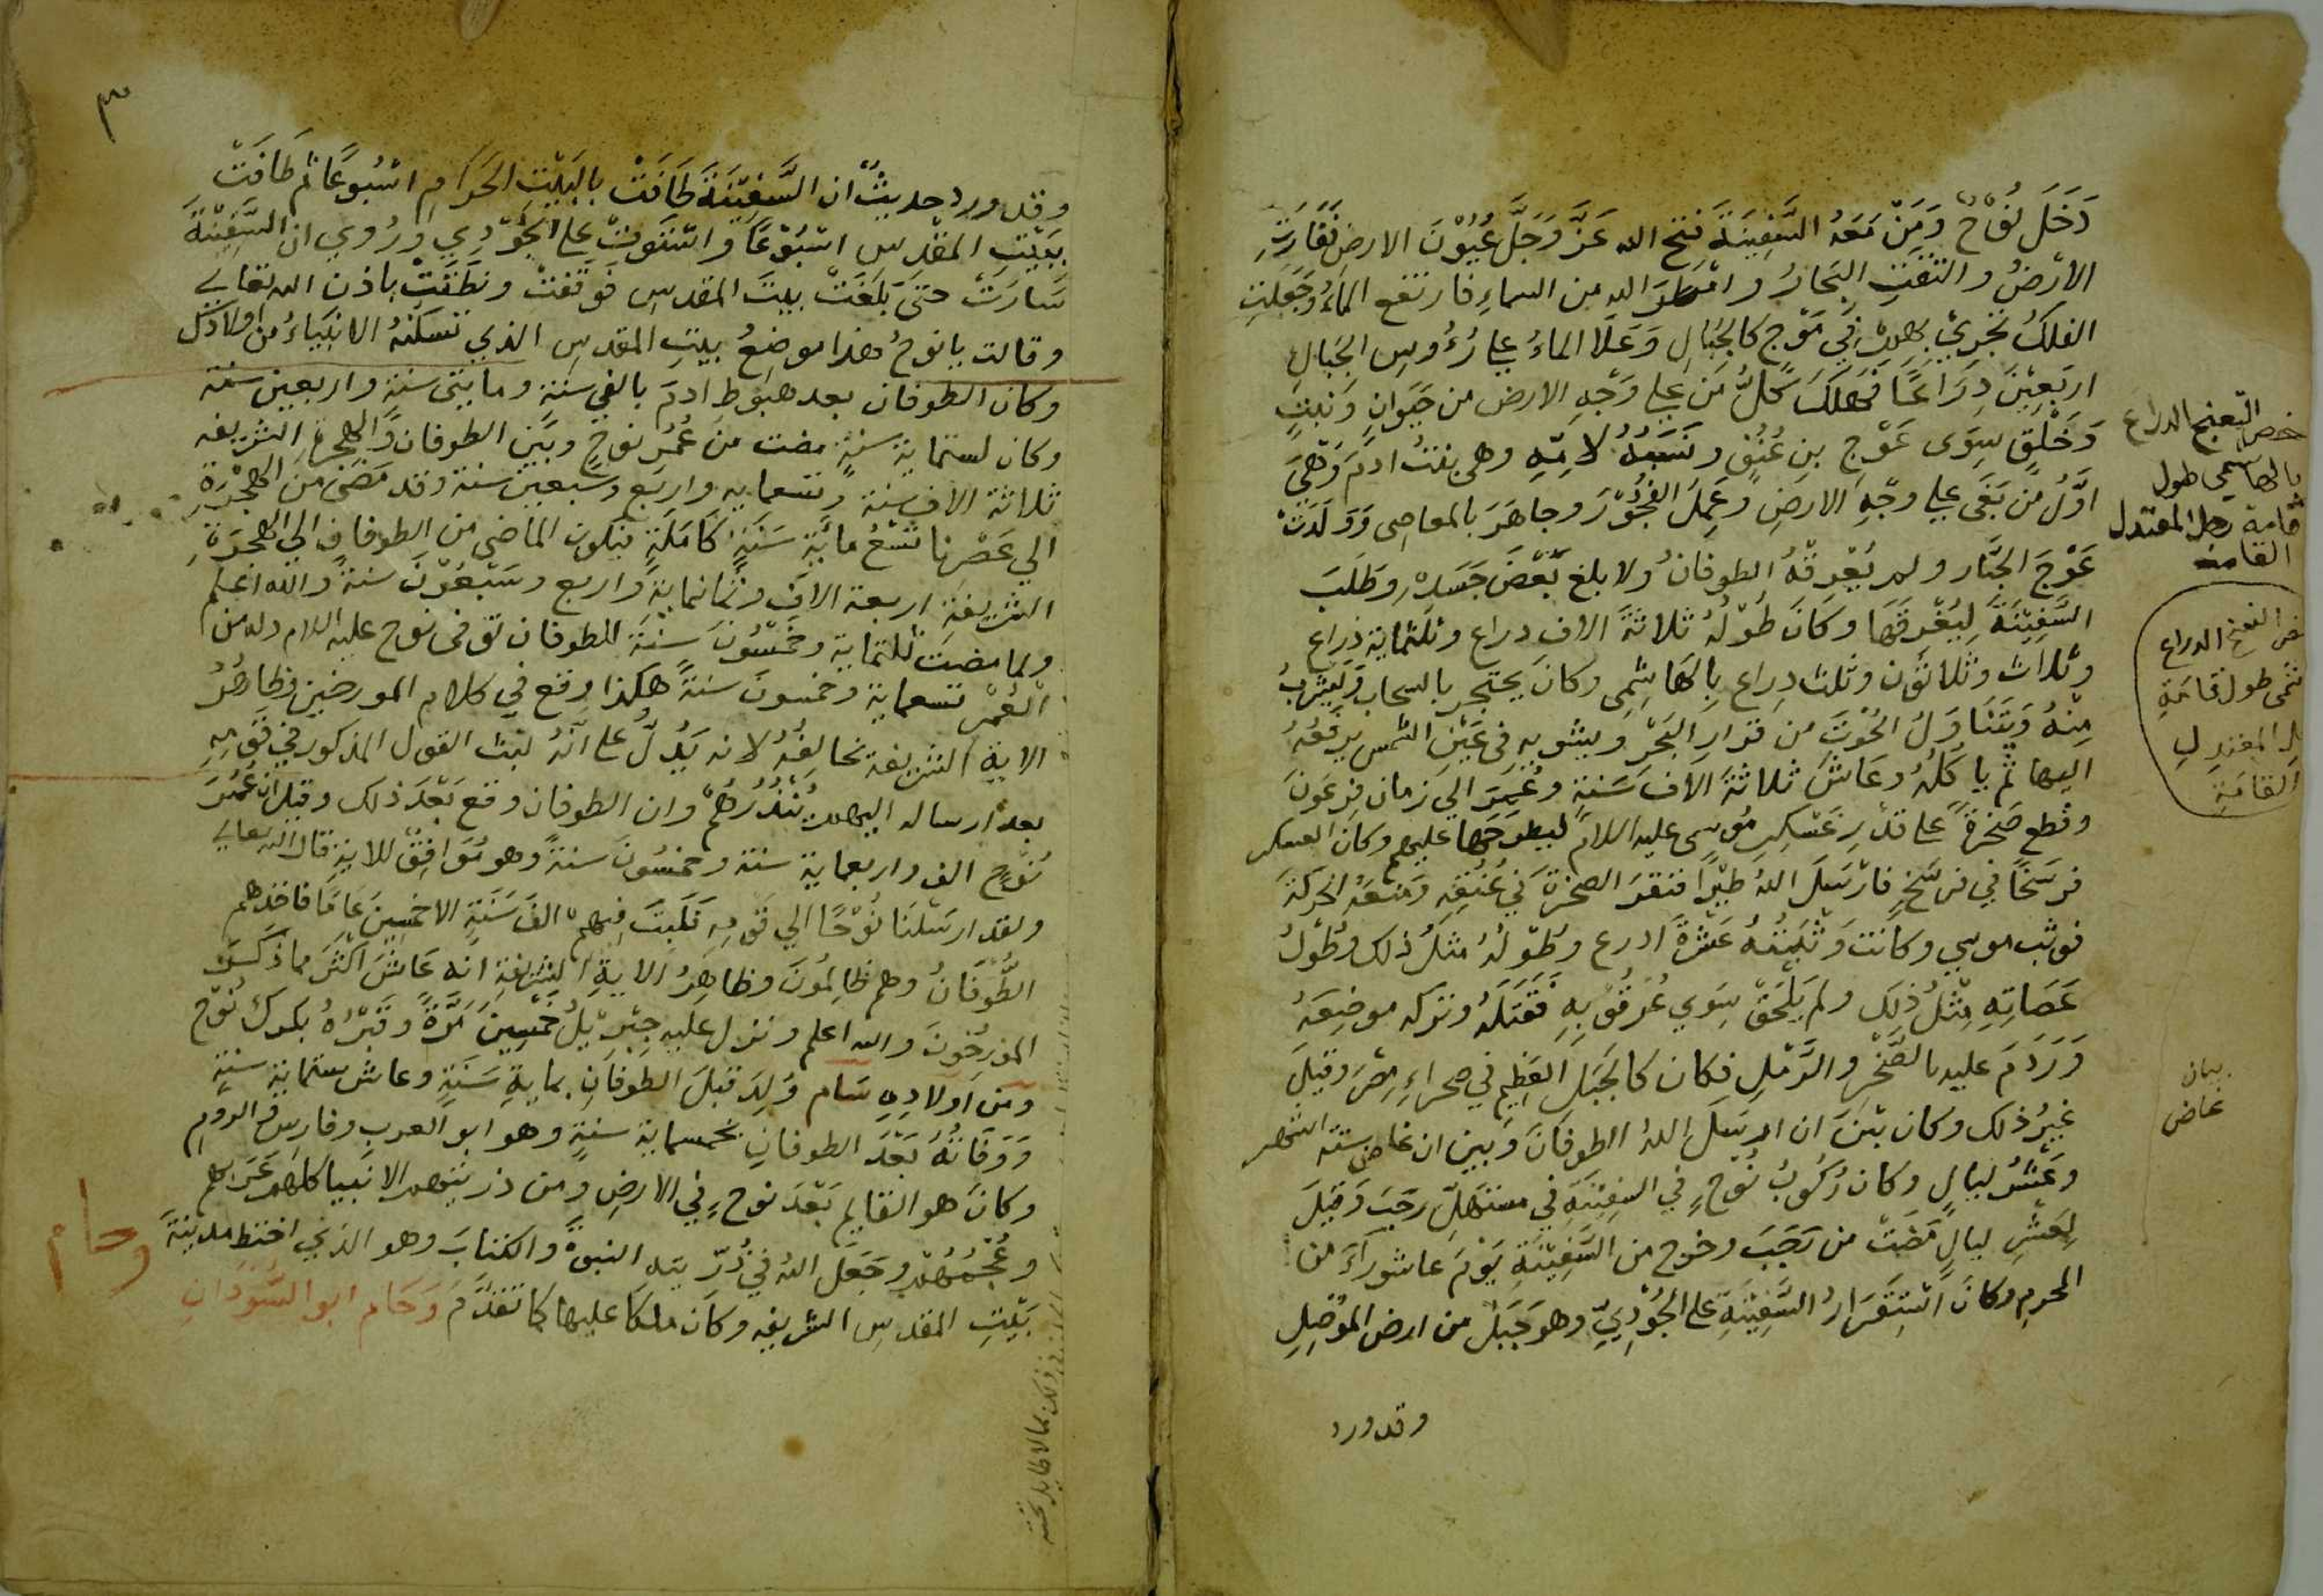 دَخَلَ نُوْحٌ وَمَنْ مَعَهُ السَّفِينَةَ فتح الله عَزَّ وَجَلَّ عُيُوْنَ الارض فَفَارَتِ
الأرضُ والتفتِ البحارُ وامْطَرَ الله من السماءِ فارتفع الماءُ وَجَعَلَتِ
الفلكُ تجرِيْ بهم في مَوْجٍ كالجبالِ وَعَلَا الماءُ علي رُءُوسِ الجبالِ
اربعِيْنَ ذِرَاعًا فهلكَ كلُّ مَن علي وَجْهِ الارض من حيوانٍ ونبتٍ
وَخَلْقٍ سِوَى عَوْجِ بنِ عُنُقٍ ونَسَبُهُ لامِّهِ وهي بنتُ ادمَ وَهْيَ
اوَّلُ مَنْ بَغَى علي وجْهِ الارضِ وعَمِلَ الفجُوْرَ وجاهَرَ بالمعاصي وَوَلَدَتْ
عَوْجَ الجبَّار ولم يُغْرِقْهُ الطوفانُ ولا بلغ بَعْضَ جَسَدِهِ وطَلَبَ
السَّفِيْنَةَ لِيُغْرِقَهَا وكانَ طُوْلُهُ ثلاثةَ الافِ ذراعٍ وثلثماية ذراع
وثلاثٌ وثلاثون وثلث ذِراعٍ بالهَاشِمِي وكانَ يحتجر بالسحاب ويَشْرَبُ
مِنْهُ وَيَتَنَاوَلُ الحُوْتَ من قرارِ البَحْرِ ويشويهِ في عَيْنِ الشمس يرفَعُهُ
اليها ثم يأكلُهُ وعَاشَ ثلاثةَ الافِ سَنةٍ وعُمِّرَ الي زمان فِرعَونَ
وقطع صَخرةً علي قدْرِ عَسْكرِ مُوسى عليه السلامُ ليطرحَها عليهم وكان العسكر
فرسَخًا في فرسَخٍ فارْسَلَ اللهُ طيْرًا فنقرَ الصخرةَ في عُنُقِهِ ومَنَعَهُ الحركةَ
فوثب موسي وكانتْ وَثْبَتُهُ عَشْرَةَ ادرع وطُوْلُهُ مثلُ ذلك وطُوْلُ
عَصَاتِهِ مِثْلُ ذلِكَ ولم يَلْحَقْ سِوي عُرقُوْبِهِ فَقَتَلَهُ وتركه موضِعَهُ
وَرَدَمَ عليه بالصَّخْرِ والرَّمْلِ فكان كالجَبَلِ العَظِيمِ في صحراءِ مِصْرَ وقيل
غيرُ ذلك وكان بَيْنَ ان ارسَلَ اللهُ الطوفانَ وبين ان غاض ستة اشهر
وعَشْرُ ليالٍ وكان رُكُوبُ نُوْحٍ في السفِيْنَةِ في مستهلِّ رجَبَ وَقيل
لِعَشْرِ ليالٍ مَضَتْ من رَجَبَ وخرج من السَّفِيْنَةِ يَوْمَ عاشورآءَ من
المحرم وكانَ اسْتِقرَارُ السَّفِيْنَةِ على الجُوْدِيِّ وهو جَبَلٌ من ارض المَوْصِلِ
وقد ورد
الذراع
بالهاشمي طول
قامة رجل المعتدل
القامة
الذراع
طول قامَةِ
المعتدِلِ
القامَةِ
بيان
غاض
٣
وقد ورد حديثٌ ان السَّفِيْنَةَ طَافَتْ بالبَيْتِ الحَرَامِ اسْبُوعًا ثم طَافَتْ
ببيْتِ المقدس اسْبُوْعًا واسْتَوَتْ علي الجُوْدِيِ ورُوي ان السَّفِيْنَةَ
سَارَتْ حتى بَلَغَتْ بيتَ المقدسِ فوَقَفتْ ونَطَقَتْ باذن الله تعالي
وقالت يا نوحُ هذا موضِعُ بيتِ المقدسِ الذي تسكنُهُ الانبياءُ من اولادك
وكان الطوفان بعد هبوطِ ادمَ بالفي سنةٍ ومايتي سنة واربعين سنة
وكان لستماية سنةٍ مضت من عُمُرِ نوحٍ وبَيْن الطوفان والهجرةِ الشريفه
ثلاثة الاف سنة وتسعمايه واربع وسَبعين سنة وقد مَضَى من الهِجْرةِ
الي عَصْرِنا تسْعُ مايَةِ سَنَةٍ كَامَلةٍ فيكون الماضي من الطوفانِ الي الهجرةِ
الشريفةِ اربعة الاف وثمانماية واربع وسَبْعُوْنَ سنةً والله اعلم
ولما مضت ثلثماية وخمْسُونَ سَنَةً للطوفان توفى نوح عليه السلام وله من
العُمْر تسعماية وخمسونَ سنةً هكذا وقع في كلام المورخين وظاهرُ
الاية الشريفة يخالفُهُ لانه يَدُلُّ على انَّهُ لبث القول المذكور في قومِهِ
بعد ارساله اليهم يُنْذِرُهُمْ وان الطوفان وقع بَعْدَ ذلك وقيل ان عُمُرَ
نُوْحٍ الف واربعماية سنة وخمسُونَ سنةً وهو مُوَافِقٌ للاية قال الله تعالي
ولقد ارسَلْنَا نُوْحًا الي قَوْمِهِ فَلَبِثَ فيهِمْ الفَ سَنَةٍ الا خمسينَ عَامًا فاخذهم
الطُّوفَانُ وهم ظَالِمُونَ وظاهرُ الايةِ الشريفةِ انه عَاشَ اكْثَرَ مما ذكرَه
المورخُونَ والله اعلم ونزل عليه جِبْرِيْلُ خمْسِيْنَ مَرَّةً وقَبْرُهُ بكرك نُوْح
ومن اولادِهِ سَام وُلِدَ قبلَ الطوفانِ بمايةِ سَنَةٍ وعاش ستماية سنةٍ
وَوَفَاتُهُ بَعْدَ الطوفانِ بخمسماية سنةٍ وهو ابو العربِ وفارس والروم
وكانَ هو القايم بَعْدَ نوحٍ في الارضِ ومن ذريتهم الانبيا كلهم عَرَبهم
وعُجْمُهم وجَعَلَ اللهُ في ذُرِّيته النبوةَ والكتابَ وهو الذِي اختط مدينةَ
بَيْتِ المقدسِ الشريفه وكان ملكا عليها كما تقدَّمَ وَحَام ابو السُّوْدَانِ
وحام